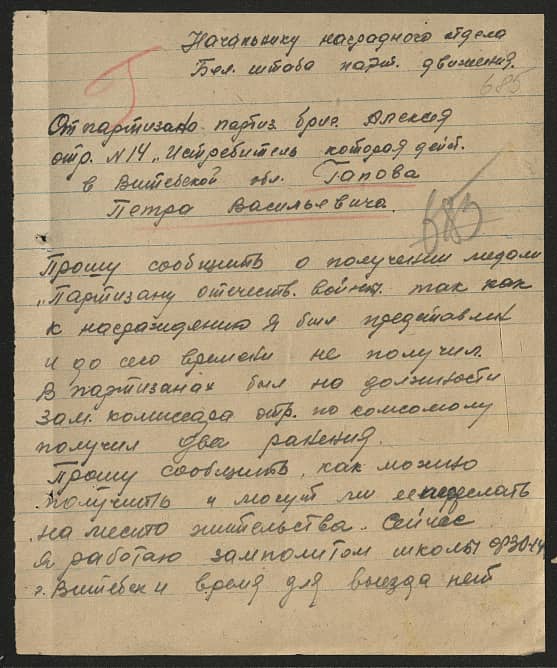 Начальнику наградного отдела
Бел. штаба парт. движения.
685
От партизана партиз. бриг. Алексея
отр. №14 „Истребитель которая дейст.
в Витебской обл. Гапова
Петра Васильевича.
683
Прошу сообщить о получении медали
„Партизану отечеств. войны. так как
к награждению я был представлен
и до сего времени не получил.
В партизанах был на должности
зам. комиссара отр. по комсомолу
получил два ранения.
Прошу сообщить, как можно
получить и могут ли ее
на место жительства. Сейчас
я работаю замполитом школы ФЗО
г. Витебск и время для выезда нет